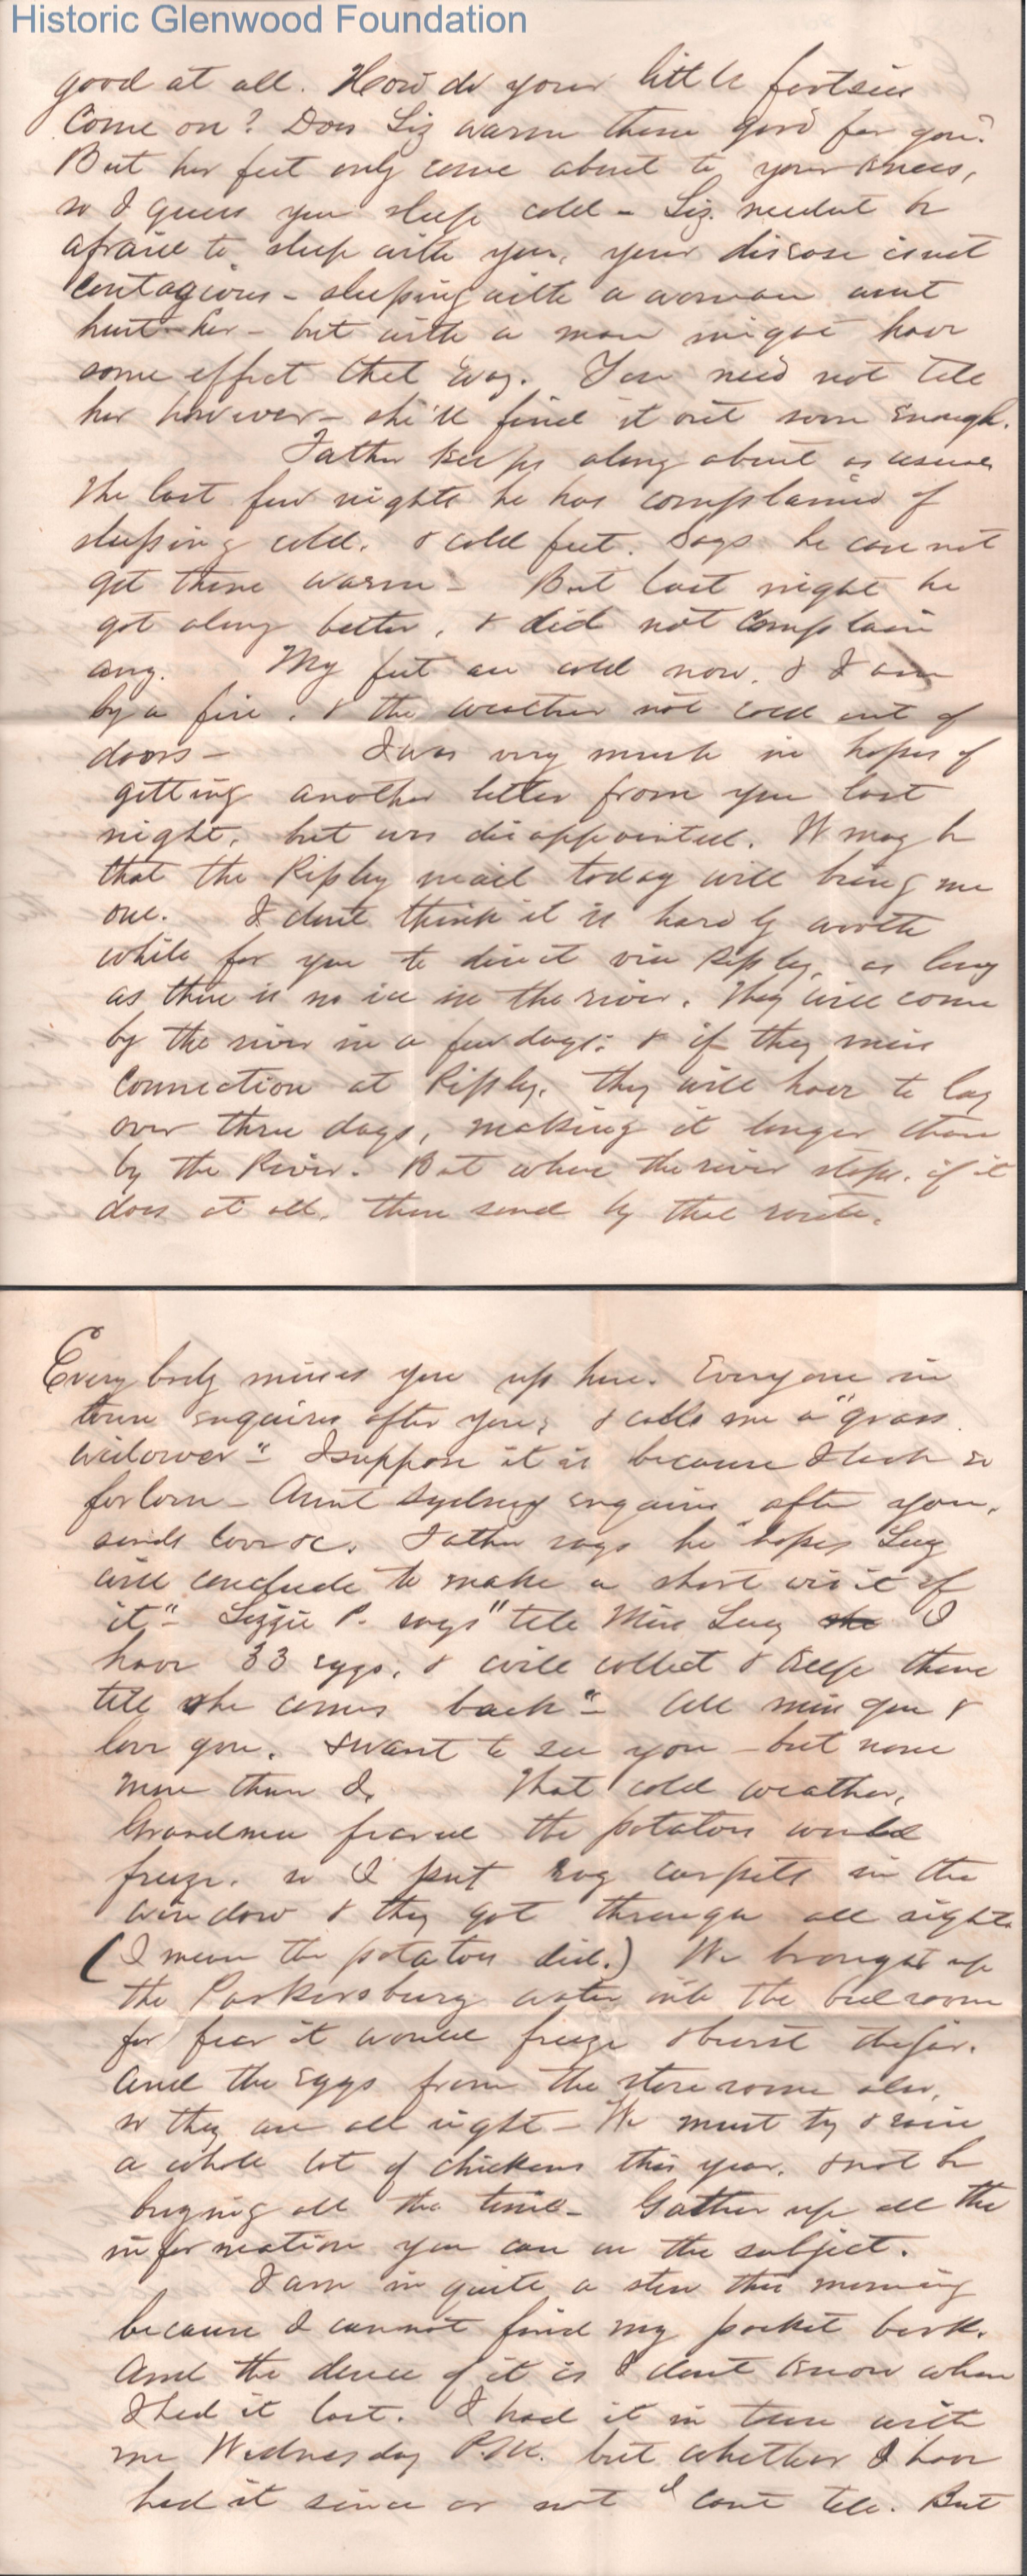 Historic Glenwood Foundation
good at all. How do your little footsies
Come on? Does Liz warm them good for you?
But her feet only come about to your knees,
so I guess you sleep cold - Liz. neednt be
afraid to sleep with you, your disease isnt
Contagious - sleeping with a woman wont
hurt her - but with a man might have
some effect that way. You need not tell
her however - she'll find it out soon enough.
Father keeps along about as usual
The last few nights he has complained of
sleeping cold, & cold feet. Says he can not
get them warm - But last night he
got along better, & did not Complain
any. My feet are cold now, & I am
by a fire, & the weather not cold out of
doors - I was very much in hopes of
getting another letter from you last
night, but was disappointed. It may be
that the Ripley mail today will bring me
one. I dont think it is hardly worth
while for you to direct via Ripley, as long
as there is no ice in the river. They will come
by the river in a few days; & if they miss
Connection at Ripley, they will have to lay
over three days, making it longer than
by the River. But when the river stops, if it
does at all, then send by that route.
Every body misses you up here. Everyone in
town enquires after you, & calls me a "grass
widower" - I suppose it is because I look so
forlorn - Aunt Sydney enquires after you,
sends love &c. Father says he "hopes Lucy
will conclude to make a short visit of
it" - Lizzie P. says "tell Miss Lucy she I
have 33 eggs, & will collect & keep them
till she comes back" - All miss you &
love you, & want to see you - but none
more than I. That cold weather,
Grandma feared the potatoes would
freeze, so I put rag carpets in the
window & they got through all right
(I mean the potatoes did.) We brought up
the Parkersburg water into the bed room
for fear it would freeze & burst the jar.
And the Eggs from the store room also,
so they are all right - We must try & raise
a whole lot of chickens this year, & not be
buying all the time - Gather up all the
information you can on the subject.
I am in quite a stew this morning
because I cannot find my pocket book.
And the deuce of it is I dont know when
I had it last. I had it in town with
me Wednesday P.M. but whether I have
had it since or not I cant tell. But